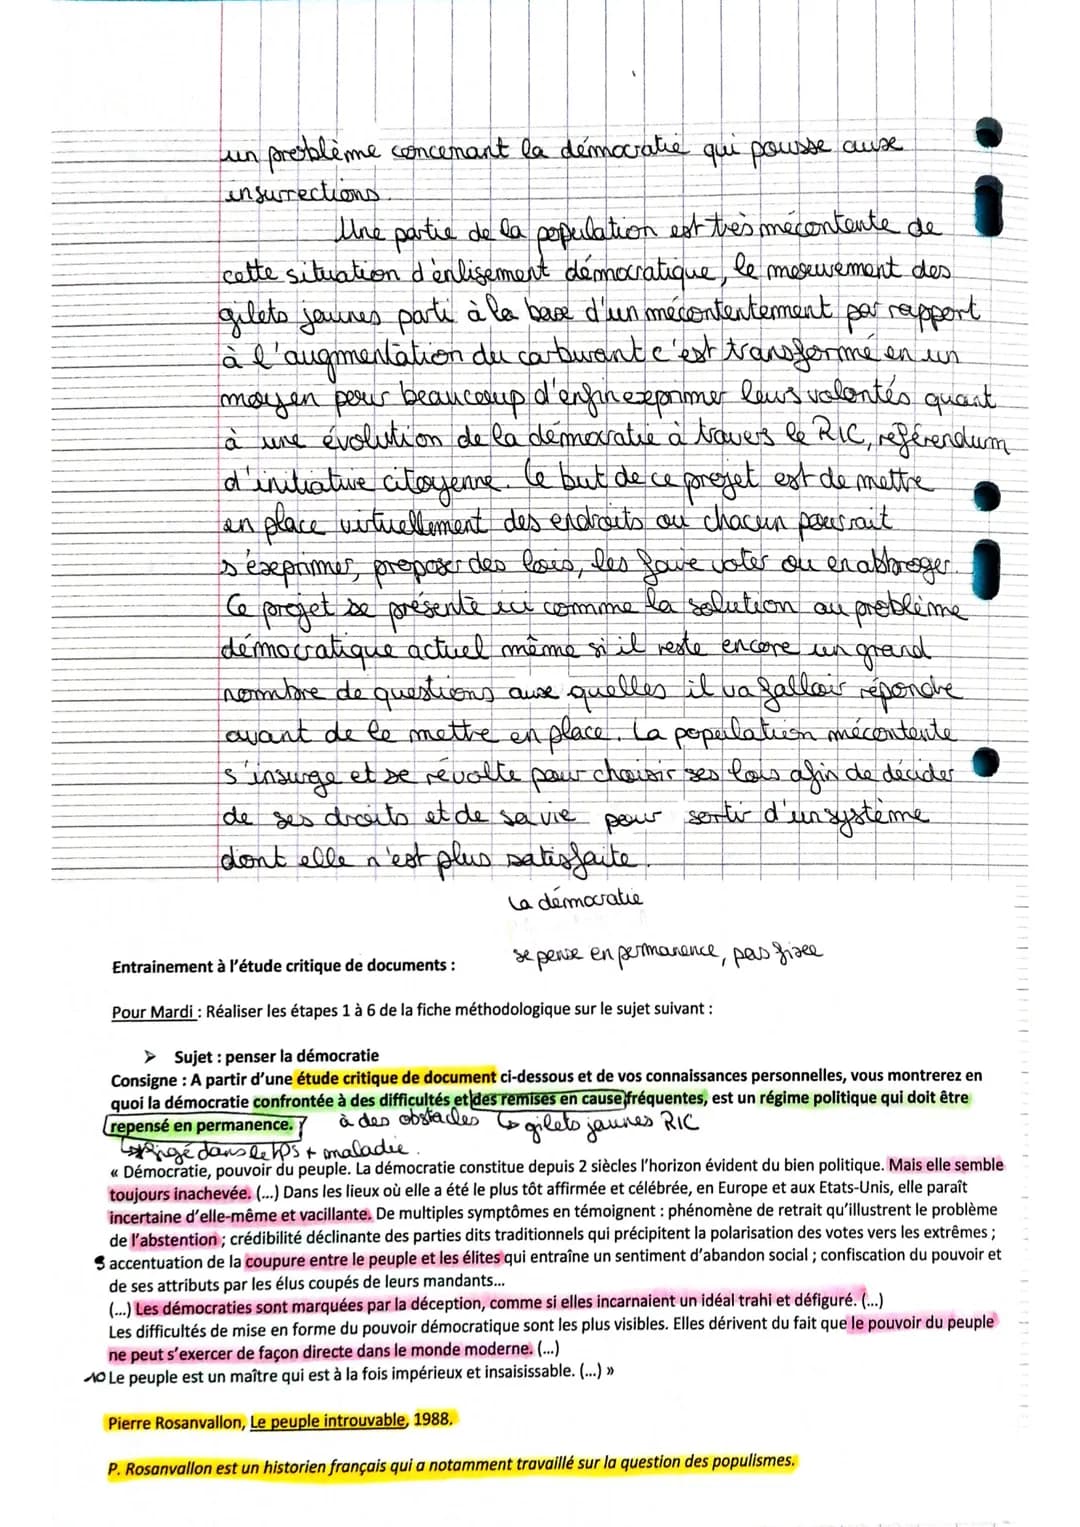 un problème concernant la démocratie qui pousse aux
insurrections.
Une partie de la population est très mécontente de
cette situation d'enlisement démocratique, le mouvement des
gilets jaunes parti à la base d'un mécontentement par rapport
à l'augmentation du carburant c'est transformé en un
moyen pour beaucoup d'enfin exprimer leurs volontés quant
à une évolution de la démocratie à travers le RIC, référendum
d'initiative citoyenne. Le but de ce projet est de mettre
en place virtuellement des endroits ou chacun pourrait
s'exprimer, proposer des lois, les faire voter ou en abbroger.
Ce projet se présente ici comme la solution au problème
démocratique actuel même si il reste encore un grand
nombre de questions aux quelles il va falloir répondre
avant de le mettre en place. La population mécontente
s'insurge et se révolte pour choisir ses lois afin de décider
de ses droits et de sa vie pour sortir d'un système
dont elle n'est plus satisfaite.
La démocratie
se pense en permanence, pas fixée
Entrainement à l'étude critique de documents :
Pour Mardi : Réaliser les étapes 1 à 6 de la fiche méthodologique sur le sujet suivant :
➤ Sujet : penser la démocratie
Consigne : A partir d'une étude critique de document ci-dessous et de vos connaissances personnelles, vous montrerez en
quoi la démocratie confrontée à des difficultés et des remises en cause fréquentes, est un régime politique qui doit être
repensé en permanence.
à des obstacles ↳ gilets jaunes RIC
dans le tps + maladie.
« Démocratie, pouvoir du peuple. La démocratie constitue depuis 2 siècles l'horizon évident du bien politique. Mais elle semble
toujours inachevée. (...) Dans les lieux où elle a été le plus tôt affirmée et célébrée, en Europe et aux Etats-Unis, elle paraît
incertaine d'elle-même et vacillante. De multiples symptômes en témoignent : phénomène de retrait qu'illustrent le problème
de l'abstention ; crédibilité déclinante des partis dits traditionnels qui précipitent la polarisation des votes vers les extrêmes ;
5 accentuation de la coupure entre le peuple et les élites qui entraîne un sentiment d'abandon social ; confiscation du pouvoir et
de ses attributs par les élus coupés de leurs mandants...
(...) Les démocraties sont marquées par la déception, comme si elles incarnaient un idéal trahi et défiguré. (...)
Les difficultés de mise en forme du pouvoir démocratique sont les plus visibles. Elles dérivent du fait que le pouvoir du peuple
ne peut s'exercer de façon directe dans le monde moderne. (...)
10 Le peuple est un maître qui est à la fois impérieux et insaisissable. (...) »
Pierre Rosanvallon, Le peuple introuvable, 1988.
P. Rosanvallon est un historien français qui a notamment travaillé sur la question des populismes.